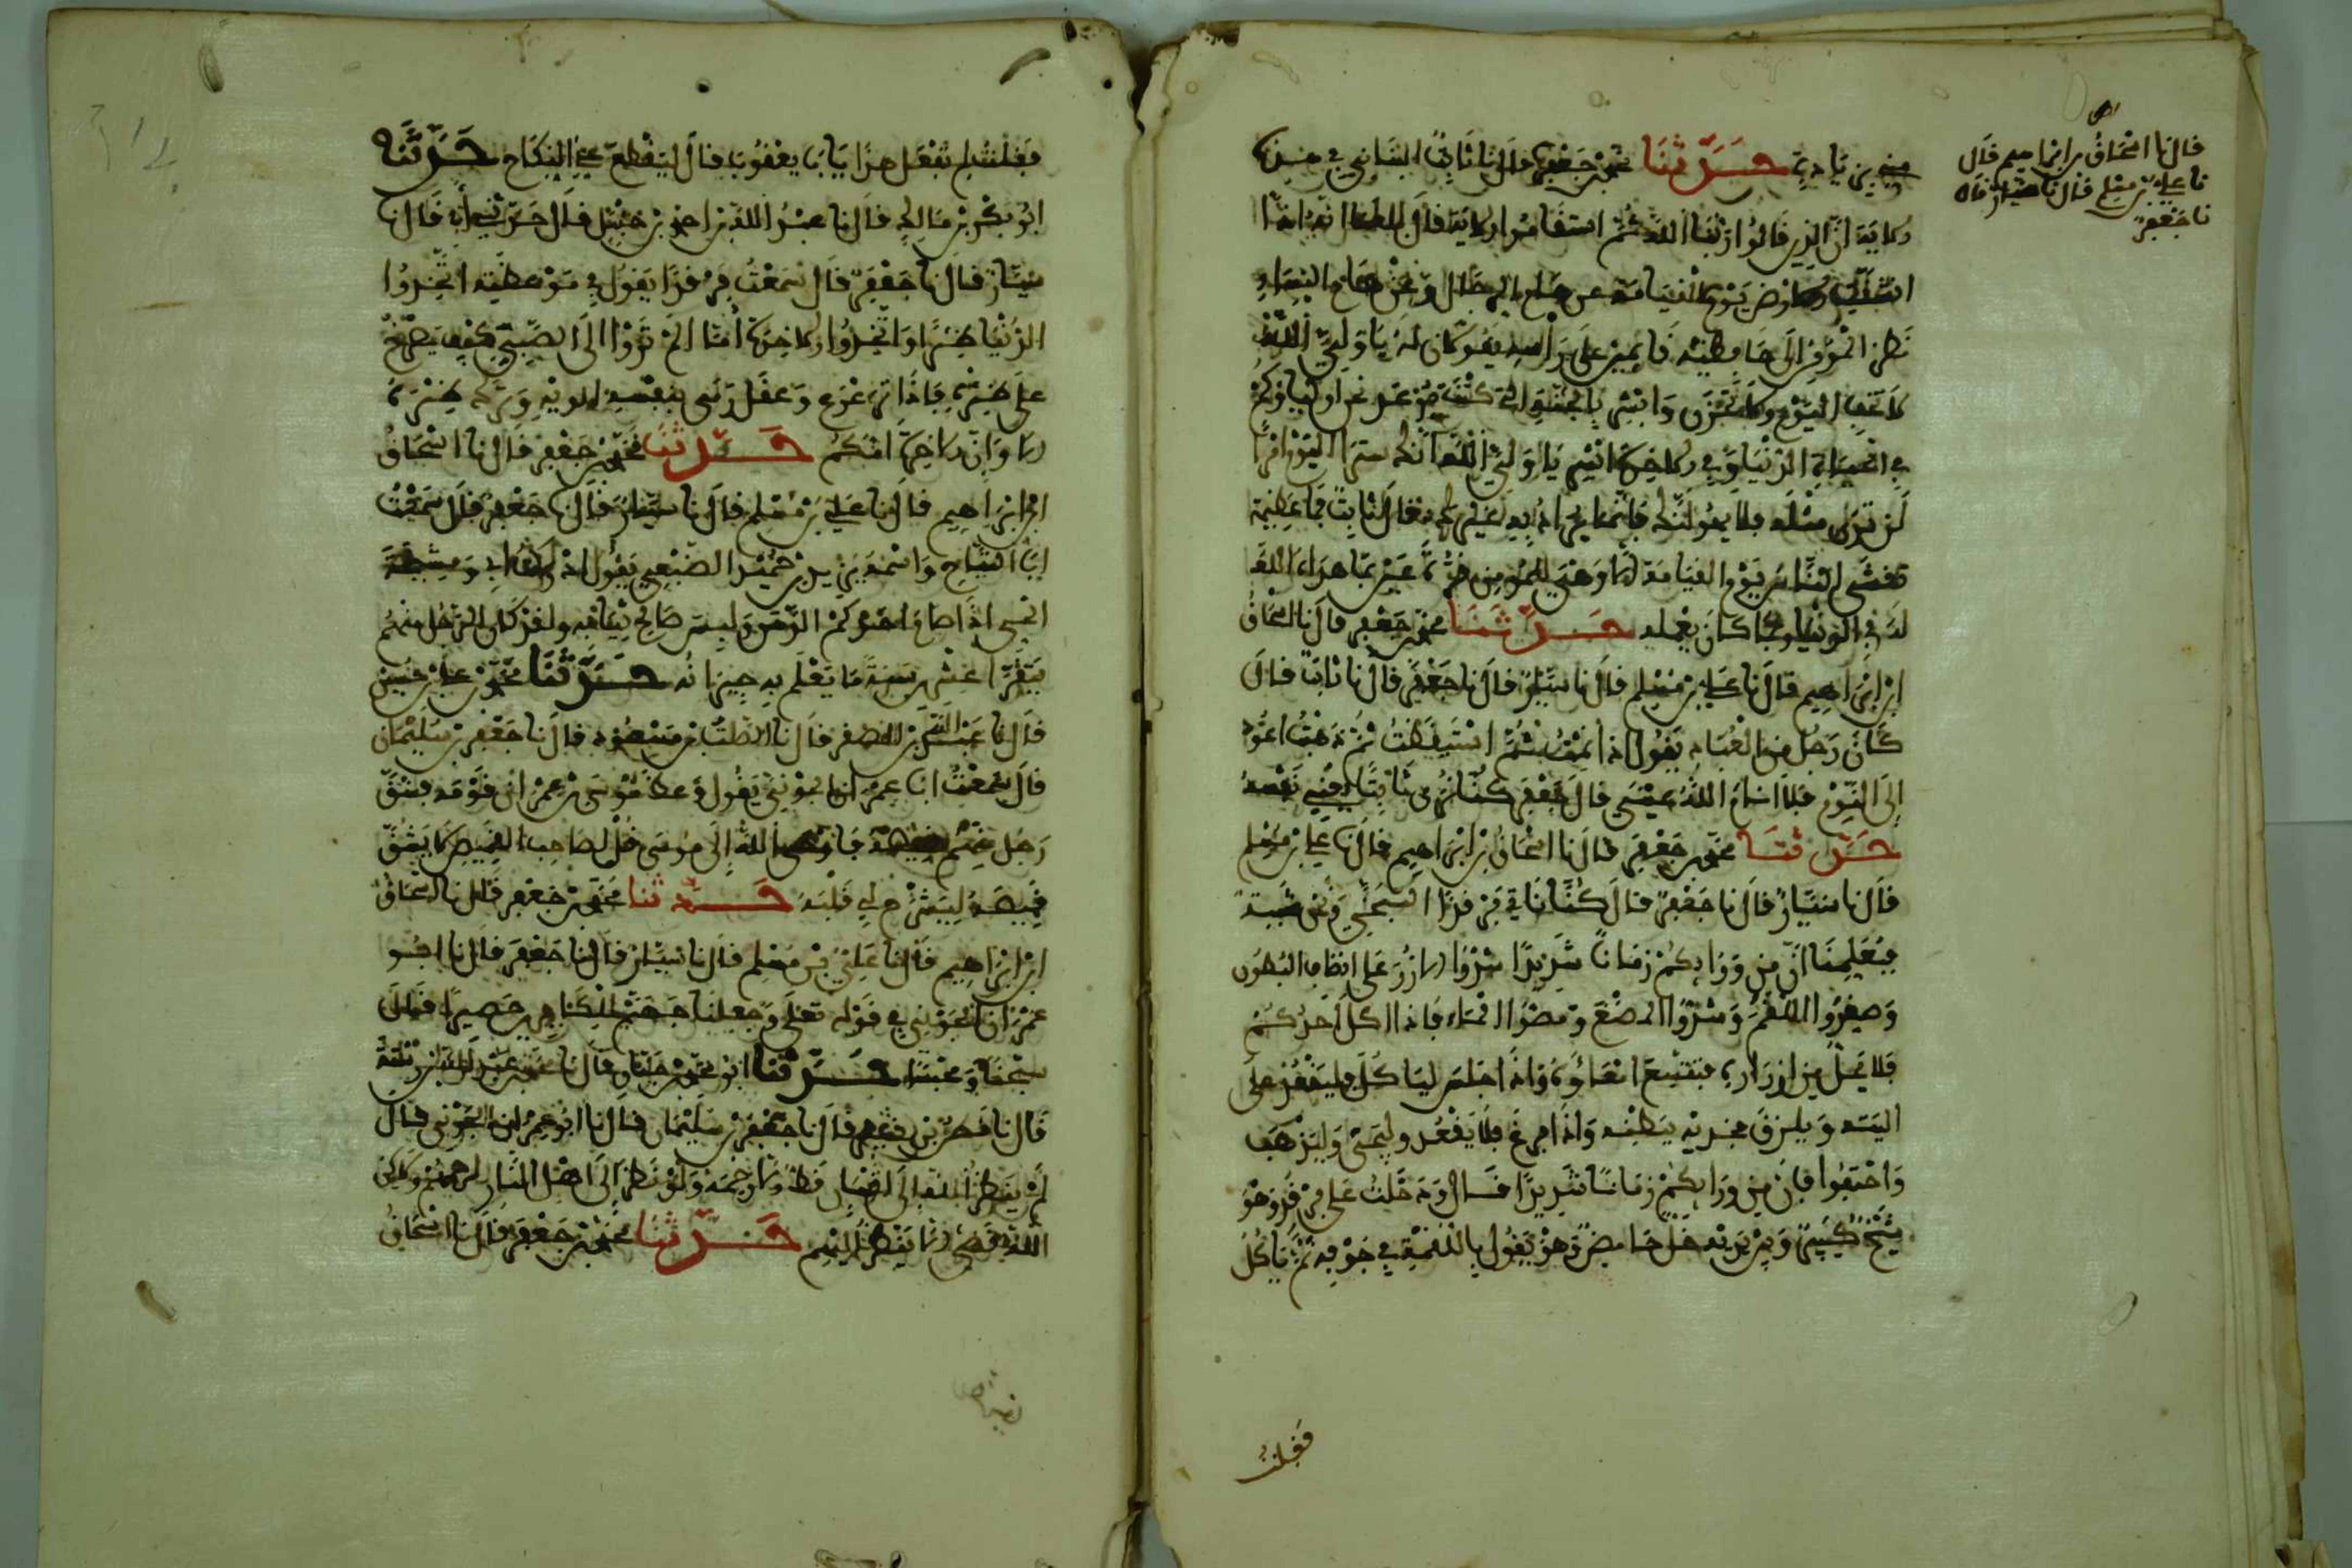 قال نا اسحاق بن ابراهيم قال
نا علي بن مسلم قال نا سيار قال
نا جعفر
من زيادته حدثنا محمد بن جعفر قال نا ثابت البناني في هذه
الاية ان الذين قالوا ربنا الله ثم استقاموا الاية قال انه اذا
انشقت الارض يوم القيامة عن
نظر المؤمن الى حافظيه قايمين على راسه يقولان له يا ولي الله
لا تخف اليوم ولا تحزن وابشر بالجنة التي كنت توعد نحن اولياوكم
في الحياة الدنيا وفي الاخرة ابشر يا ولي الله انك سترى اليوم امرا
لن ترى مثله فلا يهولنك فانما يراد به غيرك قال ثابت فما عظيمة
تغشى الناس يوم القيامة الا وهي للمومن قرة عين بما هداه الله
له في الدنيا ولما كان يعمله حدثنا محمد بن جعفر قال نا اسحاق
ابن ابراهيم قال نا علي بن مسلم قال نا سيار قال نا جعفر قال نا ثابت قال
كان رجل من العباد يقول اذا نمت ثم استيقظت ثم ذهبت اعود
الى النوم فلا انام الله عيني قال جعفر كنا نرى ثابتا يعني نفسه
حدثنا محمد بن جعفر قال نا اسحاق بن ابراهيم قال نا علي بن مسلم
قال نا سيار قال نا جعفر قال كنا ناتي فرقدا السبخي ونحن شببة
فيعلمنا ان من ورايكم زمانا شديدا شدوا الازر على انصاف البطون
وصغروا اللقم وشدوا المضغ ومصوا الماء فاذا اكل احدكم
فلا يحل من ازراره فتتسع امعاوه واذا جلس لياكل فليقعد على
اليته ويلزق فخذيه ببطنه واذا فرغ فلا يقعد وليجي وليذهب
واحتفوا فان من ورايكم زمانا شديدا قال ودخلت على فرقد وهو
شيخ كبير وبين يديه خل حامض وهو يقول باللقمة في جوفه ثم ياكل
فقلت
فقلت لم تفعل هذا يا با يعقوب قال ليقطع عني النكاح حدثنا
ابو بكر بن مالك قال نا عبد الله بن احمد بن حنبل قال حدثني ابي قال نا
سيار قال نا جعفر قال سمعت فرقدا يقول في موعظته اتخذوا
الدنيا ظئرا واتخذوا الاخرة اما الم تروا الى الصبي كيف يصرخ
على ظئره فاذا ترعرع وعقل رمى بنفسه الى والديه وترك ظئره
الا وان الاخرة امكم حدثنا محمد بن جعفر قال نا اسحاق
ابن ابراهيم قال نا علي بن مسلم قال نا سيار قال نا جعفر قال سمعت
ابا التياح واسمه يزيد بن حميد الضبعي يقول ادركت ابي ومشيخة
الحي اذا صام احدكم ادهن ولبس صالح ثيابه ولقد كان الرجل منهم
يتقرا عشرين سنة ما يعلم به جيرانه حدثنا محمد بن علي بن حبيش
قال نا عبد الله بن الصقر قال نا الصلت بن مسعود قال نا جعفر بن سليمان
قال سمعت ابا عمران الجوني يقول وعظ موسى بن عمران قومه فشق
رجل منهم قميصه فاوحى الله الى موسى قل لصاحب القميص لا يشق
قميصه ليشرح لي قلبه حدثنا محمد بن جعفر قال نا اسحاق
ابن ابراهيم قال نا علي بن مسلم قال نا سيار قال نا جعفر قال نا ابو
عمران الجوني في قوله تعلى وجعلنا جهنم للكافرين حصيرا قال
سجنا ومحبسا حدثنا ابو محمد بن حيان قال نا محمد بن عبد الله بن رسته
قال نا قطن بن نسير قال نا جعفر بن سليمان قال نا ابو عمران الجوني قال
لم ينظر الله الى انسان قط الا رحمه ولو نظر الى اهل النار لرحمهم ولكن
الله قضى الا ينظر اليهم حدثنا محمد بن جعفر قال نا اسحاق